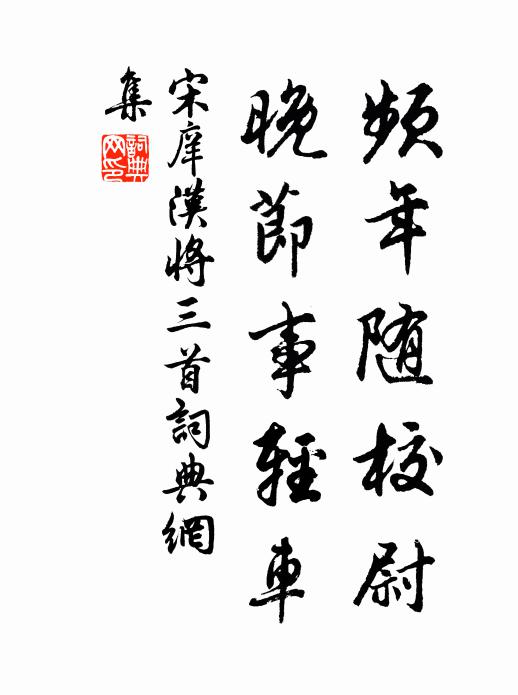 頻年随校尉
晚節事輕車
宋庠漢將三首詞典網
集
詞典
网印